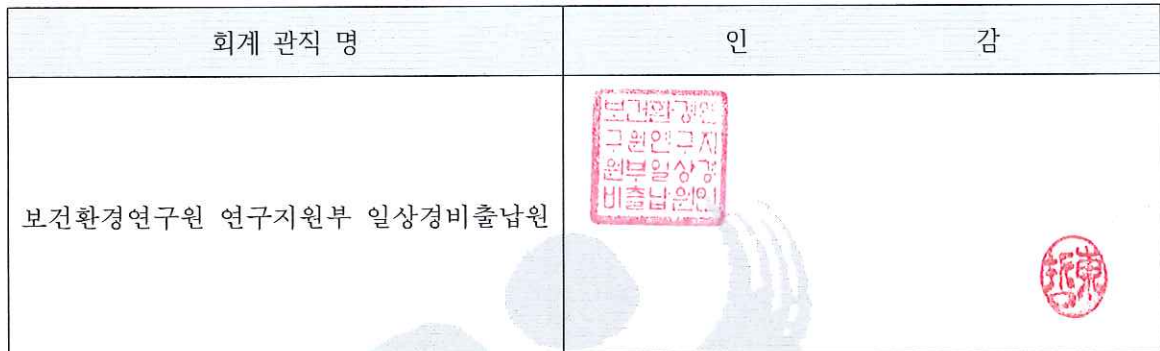 회계 관직 명
인 감
보건환경연구원 연구지원부 일상경비출납원
보건환경연
구원연구지
원부일상경
비출납원인
東哲